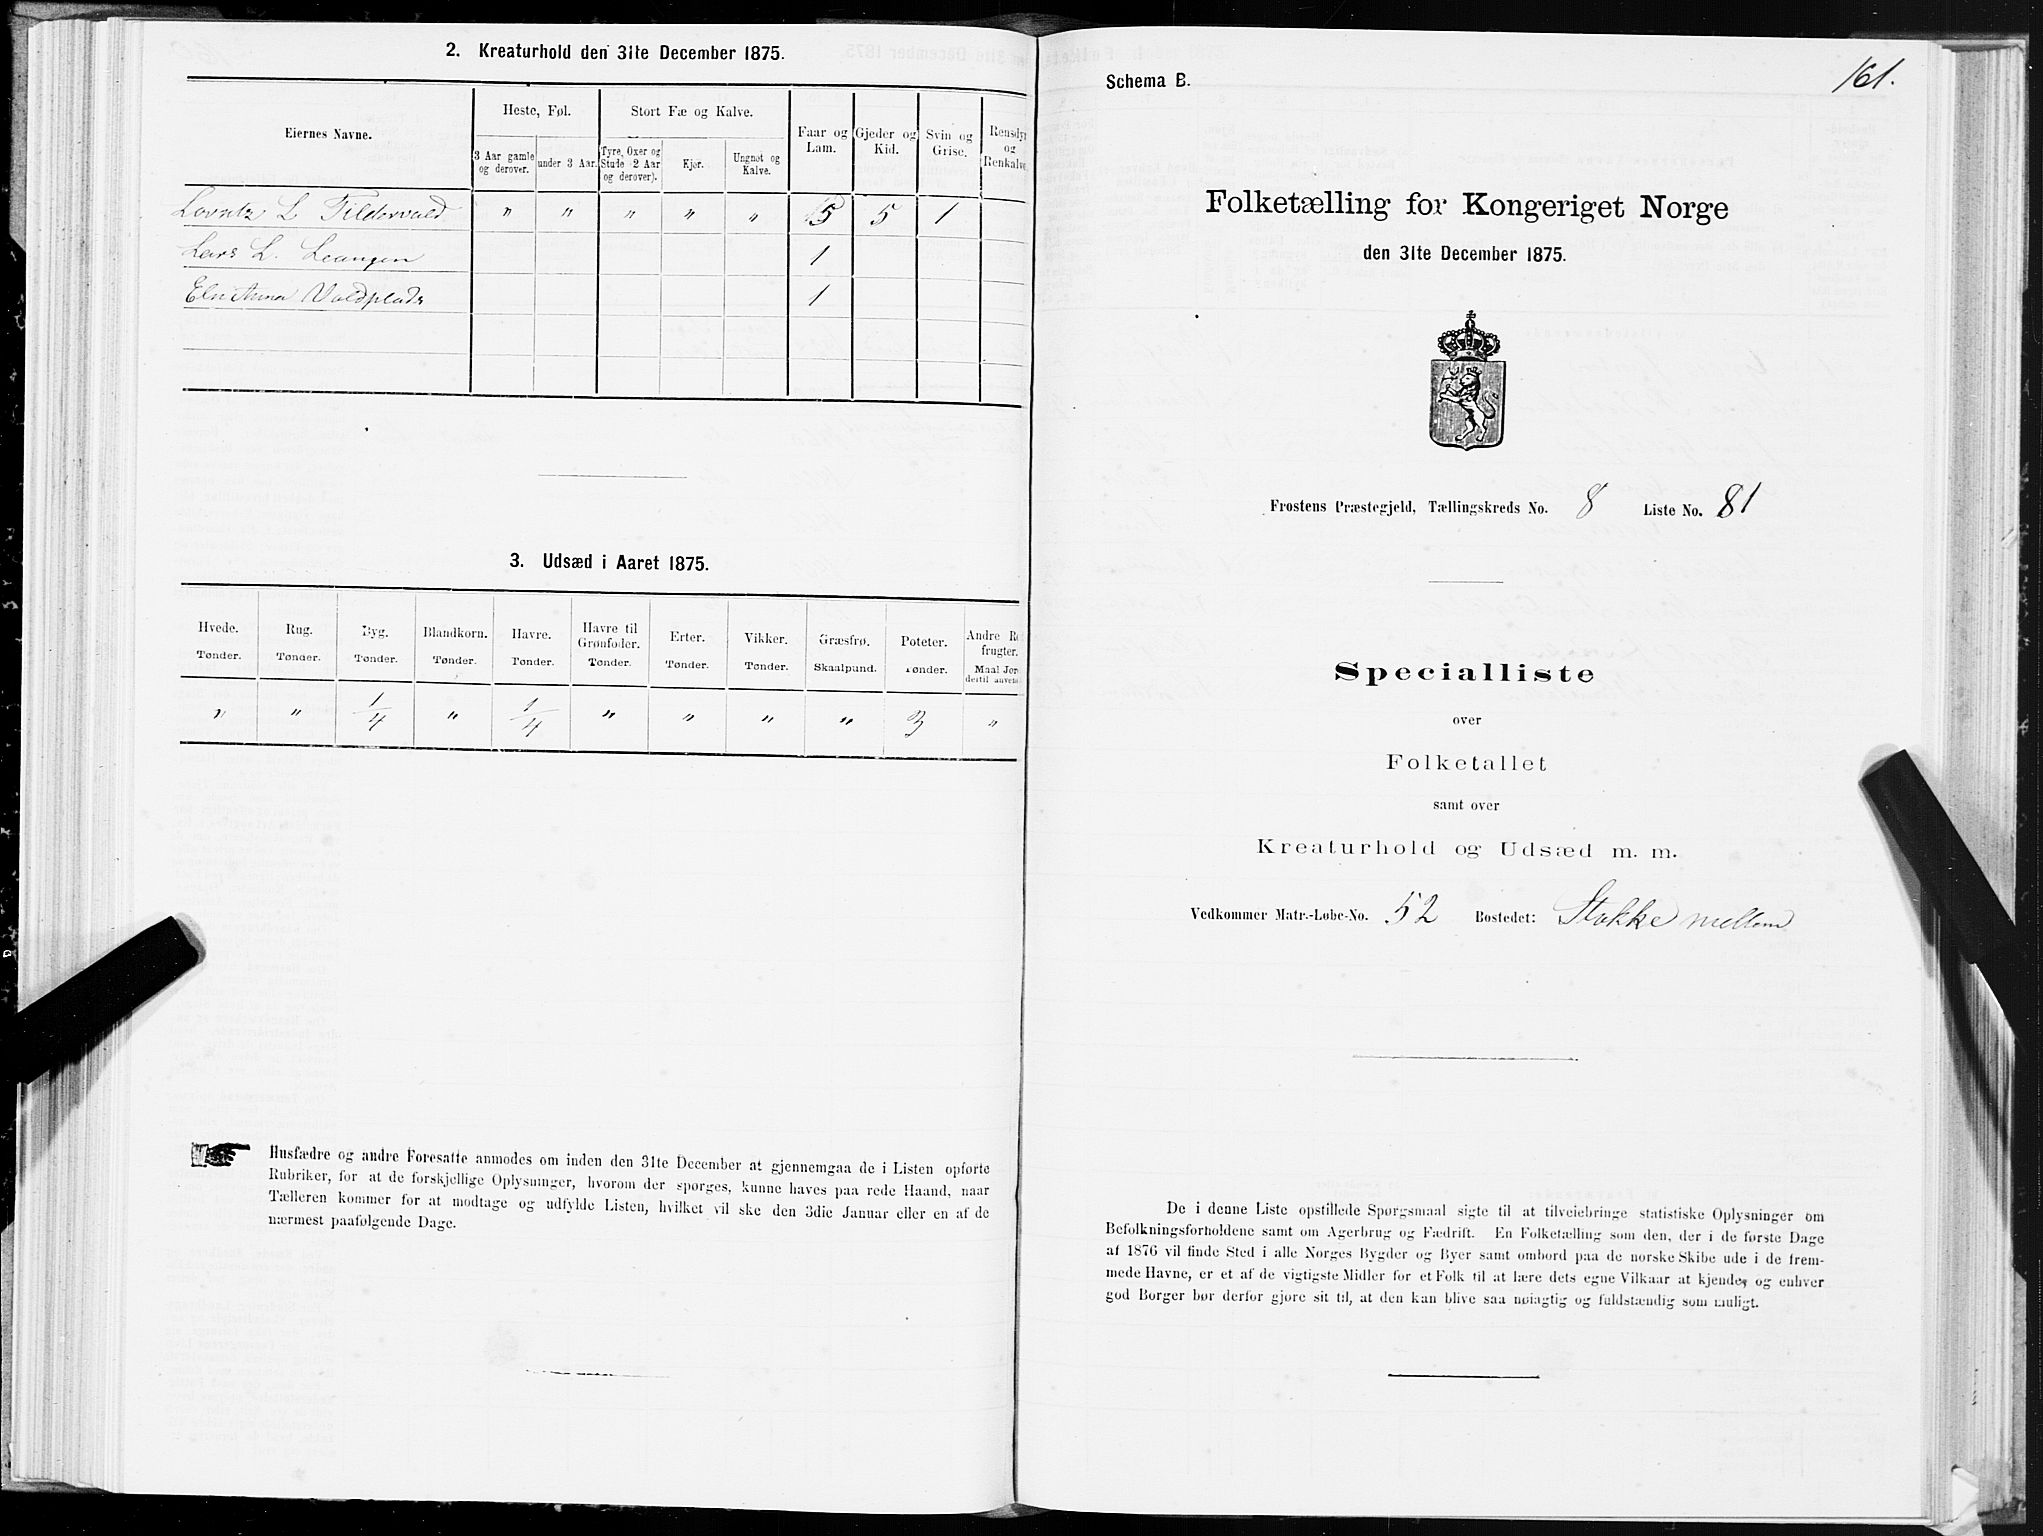 2. Kreaturhold den 31te December 1875.
Eiernes Navne.
Heste, Føl.
Stort Fæ og Kalve.
Faar og Lam.
Gjeder og Kid.
Svin og Grise.
Rensdyr og Renkalve.
3 Aar gamle og derover.
under 3 Aar.
Tyre, Oxer og Stude (2 Aar og derover).
Kjør.
Ungnøt og Kalve.
Lorntz L Tildervald " " " " " 5 5 1
Lars L. Leangen 1
Eln Anna Valdplads 1
3. Udsæd i Aaret 1875.
Hvede. Rug. Byg. Blandkorn. Havre. Havre til Grønfoder. Erter. Vikker. Græsfrø. Poteter. Andre Ro frugter.
Tønder. Tønder. Tønder. Tønder. Tønder. Tønder. Tønder. Tønder. Skaalpund. Tønder. Maal Jor dertil anvend
" " 1/4 " 1/4 " " " " 3 "
Husfædre og andre Foresatte anmodes om inden den 31te December at gjennemgaa de i Listen opførte
Rubriker, for at de forskjellige Oplysninger, hvorom der spørges, kunne haves paa rede Haand, naar
Tælleren kommer for at modtage og udfylde Listen, hvilket vil ske den 3die Januar eller en af de
nærmest paafølgende Dage.
161.
Schema B.
Folketælling for Kongeriget Norge
den 31te December 1875.
Frostens Præstegjeld, Tællingskreds No. 8 Liste No. 81
Specialliste
over
Folketallet
samt over
Kreaturhold og Udsæd m. m.
Vedkommer Matr.-Løbe-No. 52 Bostedet: Stokke mellem
De i denne Liste opstillede Spørgsmaal sigte til at tilveiebringe statistiske Oplysninger om
Befolkningsforholdene samt om Agerbrug og Fædrift. En Folketælling som den, der i de første Dage
af 1876 vil finde Sted i alle Norges Bygder og Byer samt ombord paa de norske Skibe ude i de frem-
mede Havne, er et af de vigtigste Midler for et Folk til at lære dets egne Vilkaar at kjende, og enhver
god Borger bør derfor gjøre sit til, at den kan blive saa nøiagtig og fuldstændig som muligt.